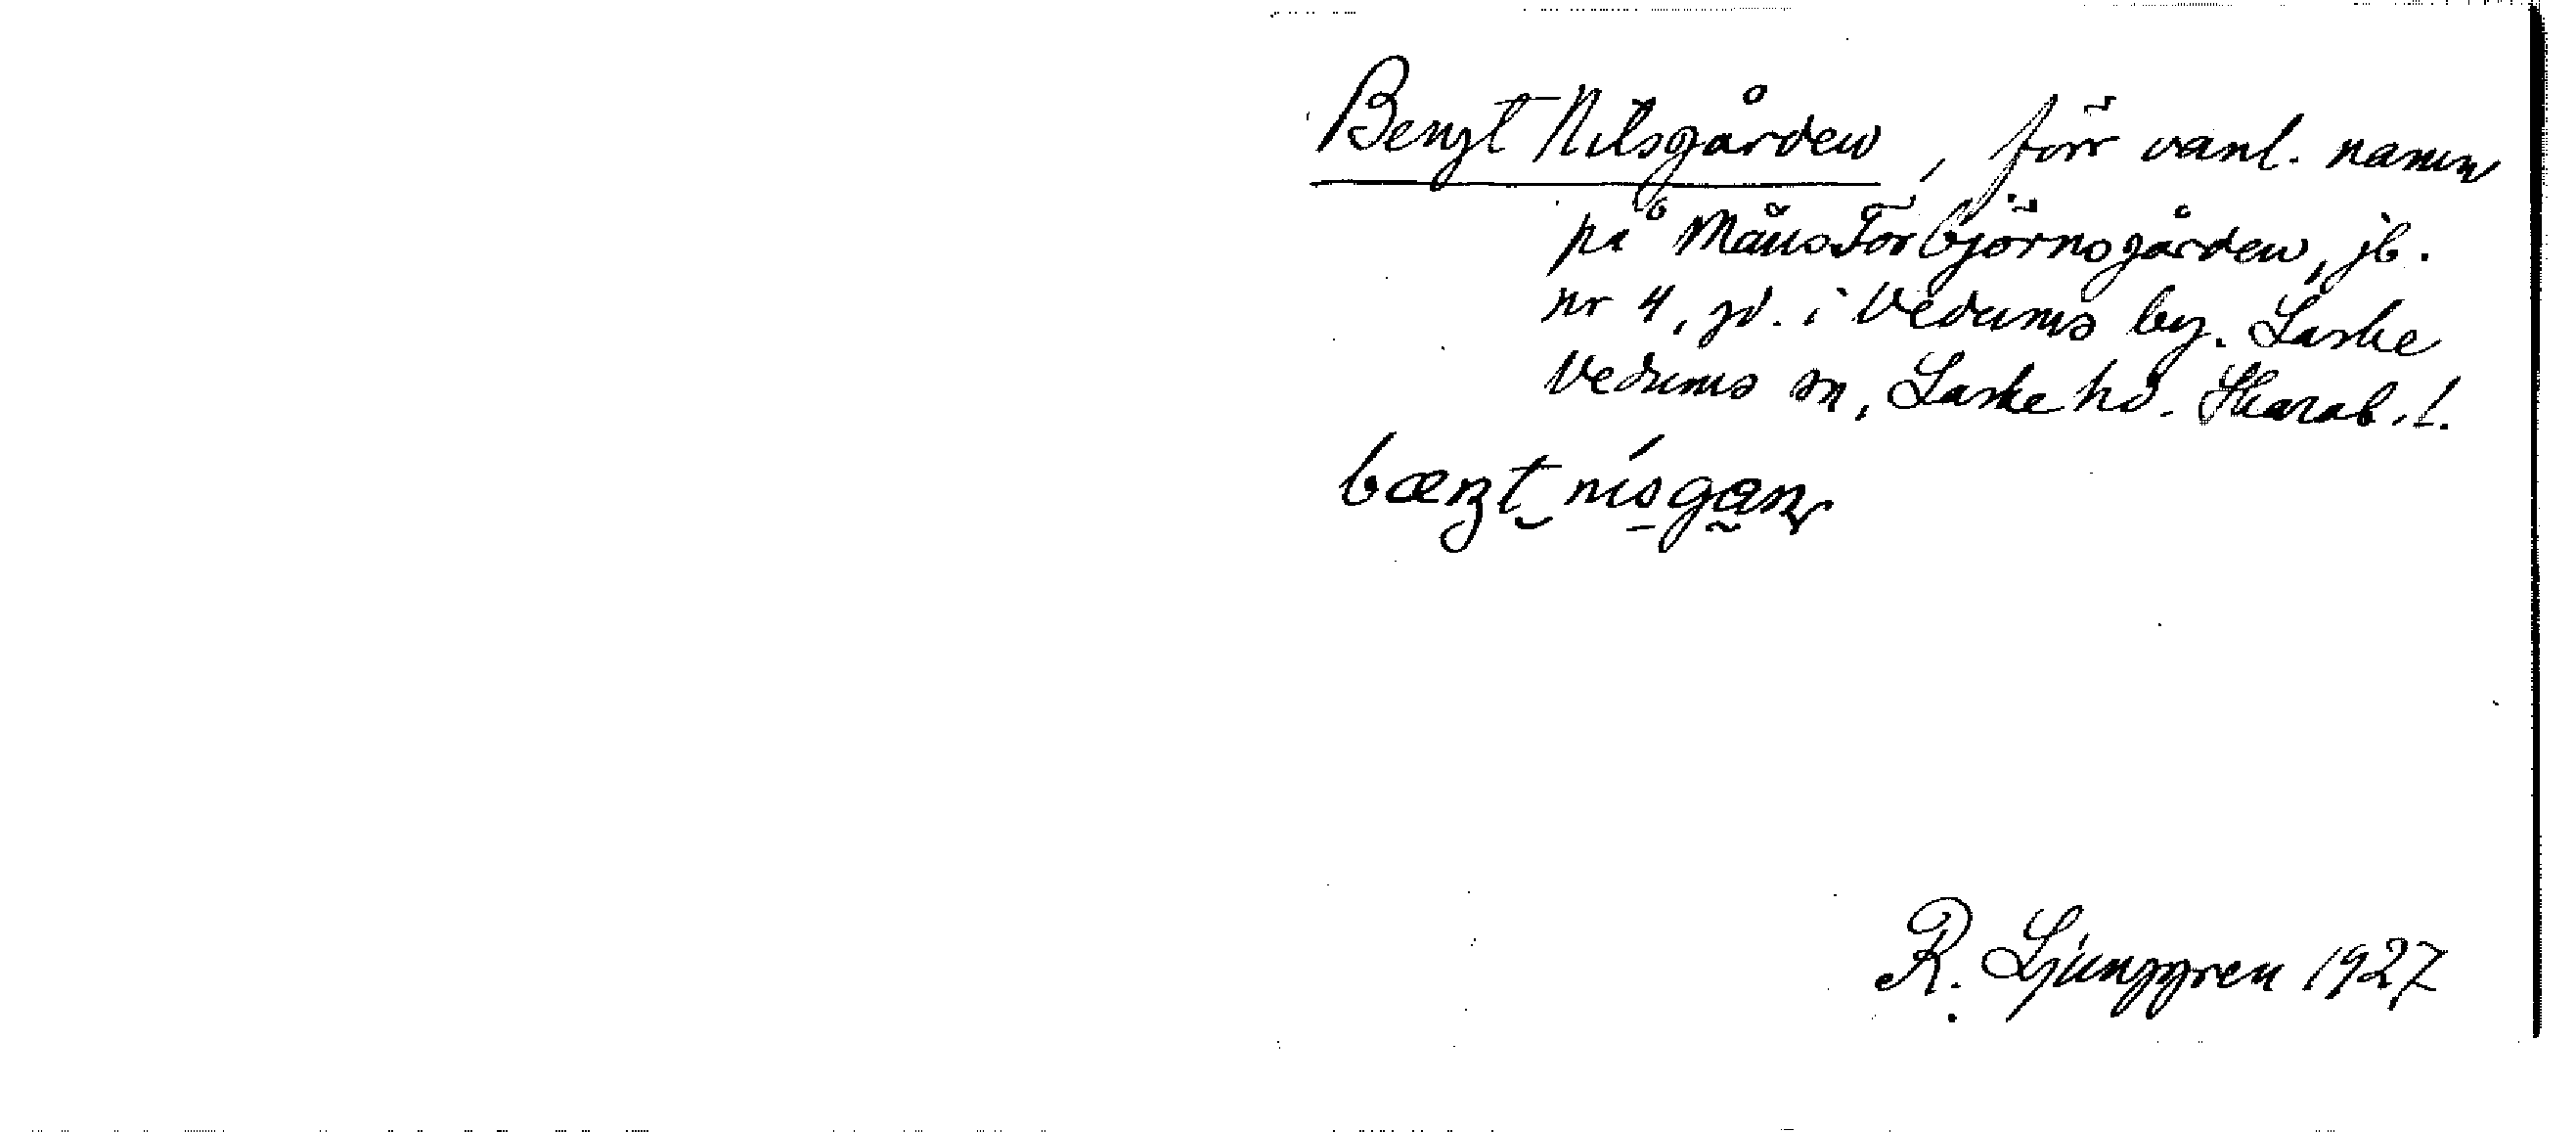 Bengt Nilsgården, förr vanl. namn
på Måns Torbjörnsgården, jb.
nr 4, gd. i Vedums by. Laske
Vedums sn, Laske hd. Skarab. l.
bæŋt nísgan
R. Ljunggren 1927